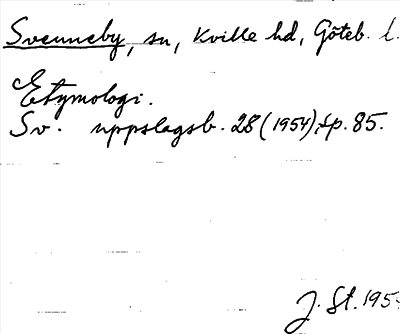 Svenneby, sn, Kville hd, Göteb. l.
Etymologi.
Sv. uppslagsb. 28 (1954), sp. 85.
J. St. 195